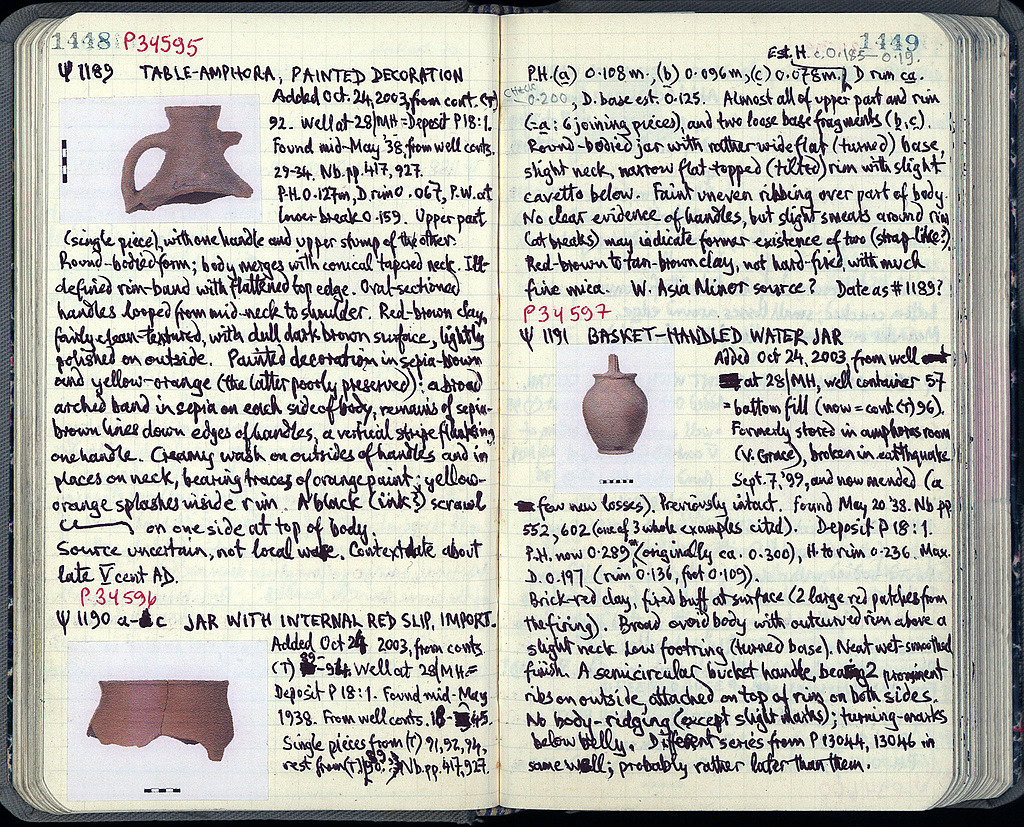 1448 P34595
Ψ 1189 TABLE-AMPHORA, PAINTED DECORATION
Added Oct. 24, 2003, from cont. (T)
92. Well at 28/MH = Deposit P 18:1.
Found mid-May '38, from well conts.
29-34. Nb. pp. 417, 927.
P.H. 0.127m, D. rim 0.067, P.W. at
lower break 0.159. Upper part
(single piece), with one handle and upper stump of the other.
Round-bodied form; body merges with conical tapered neck. Ill-
defined rim-band with flattened top edge. Oval-sectioned
handles looped from mid-neck to shoulder. Red-brown clay,
fairly clean-textured, with dull dark brown surface, lightly
polished on outside. Painted decoration in sepia-brown
and yellow-orange (the latter poorly preserved): a broad
arched band in sepia on each side of body, remains of sepia-
brown lines down edges of handles, a vertical stripe flanking
one handle. Creamy wash on outsides of handles and in
places on neck, bearing traces of orange paint; yellow-
orange splashes inside rim. A black (ink?) scrawl
on one side at top of body.
Source uncertain, not local ware. Context date about
late V cent AD.
P34596
Ψ 1190 a-c JAR WITH INTERNAL RED SLIP, IMPORT.
Added Oct 24 2003, from conts.
(T) 89-94. Well at 28/MH =
Deposit P 18:1. Found mid-May
1938. From well conts. 18-45.
Single pieces from (T) 91, 92, 94,
rest from (T) 90, Nb. pp. 417, 927.
1449
Est. H. c. 0.185-0.19.
P.H. (a) 0.108m., (b) 0.096m, (c) 0.078m. D rim ca.
0.200, D. base est. 0.125. Almost all of upper part and rim
(= a: 6 joining pieces), and two loose base fragments (b, c).
Round-bodied jar with rather wide flat (turned) base,
slight neck, narrow flat-topped (tilted) rim with slight
cavetto below. Faint uneven ribbing over part of body.
No clear evidence of handles, but slight smears around rim
(at breaks) may indicate former existence of two (strap-like?).
Red-brown to tan-brown clay, not hard-fired, with much
fine mica. W. Asia Minor source? Date as # 1189?
P34597
Ψ 1191 BASKET-HANDLED WATER JAR
Added Oct 24, 2003, from well
at 28/MH, well container 57
= bottom fill (now = cont. (T) 96).
Formerly stored in amphoras room
(V. Grace), broken in earthquake
Sept. 7, '99, and now mended (a
few new losses). Previously intact. Found May 20 '38. Nb pp
552, 602 (one of 3 whole examples cited). Deposit P 18:1.
P.H. now 0.289 m (originally ca. 0.300), H. to rim 0.236. Max.
D. 0.197 (rim 0.136, foot 0.109).
Brick-red clay, fired buff at surface (2 large red patches from
the firing). Broad ovoid body with outcurved rim above a
slight neck. Low footring (turned base). Neat wet-smoothed
finish. A semicircular bucket handle, bearing 2 prominent
ribs on outside, attached on top of rim on both sides.
No body-ridging (except slight marks); turning-marks
below belly. Different series from P 13044, 13046 in
same well; probably rather later than them.